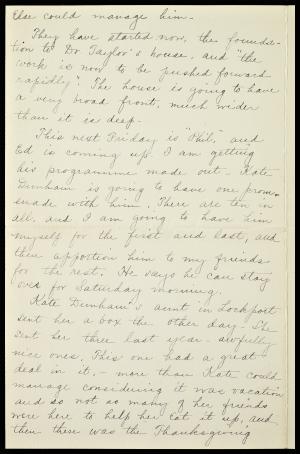 Else could manage him.
They have started now, the founda-
tion to Dr Taylor's house, and "the
work is now to be pushed forward
rapidly". The house is going to have
a very broad front, much wider
than it is deep.
This next Friday is "Phil", and
Ed is coming up. I am getting
his programme made out - Kate
Dunham is going to have one prom-
enade with him. There are ten in
all, and I am going to have him
myself for the first and last, and
then apportion him to my friends
for the rest. He says he can stay
over for Saturday morning.
Kate Dunham's aunt in Lockport
sent her a box the other day - She
sent her three last year - awfully
nice ones. This one had a great
deal in it, - more than Kate could
manage considering it was vacation
and so not so many of her friends
were here to help her eat it up, and
then there was the Thanksgiving